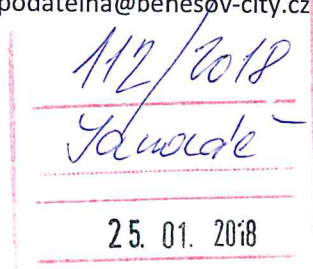 podatelna@benesov-city.cz
112/2018
25. 01. 2018